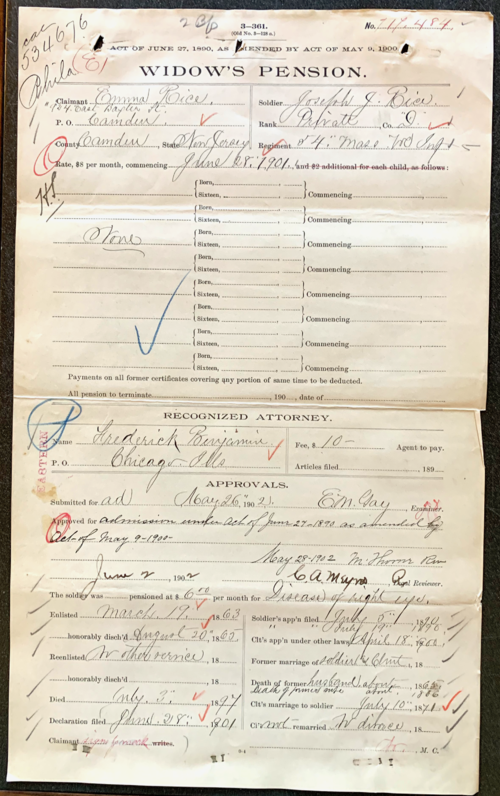 3-361.
No. 717.484.
ctf
534676
Phila
ACT OF JUNE 27, 1890, AS AMENDED BY ACT OF MAY 9, 1900.
WIDOW'S PENSION.
Claimant Emma Rice, Soldier Joseph J. Rice.
P. O. Camden Rank Private, Co. "D"
County Camden, State New Jersey Regiment 54" Mass Vol Inft
Rate, $8 per month, commencing June 28" 1901, and $2 additional for each child, as follows:
{Born,
{Sixteen, Commencing
{Born,
{Sixteen, Commencing
None {Born,
{Sixteen, Commencing
{Born,
{Sixteen, Commencing
{Born,
{Sixteen, Commencing
{Born,
{Sixteen, Commencing
{Born,
{Sixteen, Commencing
{Born,
{Sixteen, Commencing
Payments on all former certificates covering any portion of same time to be deducted.
All pension to terminate , 190 , date of
RECOGNIZED ATTORNEY.
EASTERN
Name Frederick Benjamin Fee, $ 10- Agent to pay.
P. O. Chicago Ills Articles filed , 189
APPROVALS.
Submitted for ad May 26", 1902. E. M. Gay, Examiner.
Approved for admission under act of June 27-1890 as amended by
act of May 9-1900-
May 28-1902
June 2, 1902 Reviewer.
The soldier was pensioned at $ 6 00 per month for Disease of right eye.
Enlisted March 19, 1863 Soldier's app'n filed July
honorably disch'd August 20, Clt's app'n under other laws April 18,
Reenlisted No other service, 18 Former marriage of soldier & Clmt, 18
honorably disch'd , 18 Death of former husband about
Died July 3" Clt's marriage to soldier July 10", 1871
Declaration filed June 28", 1901 Cl't not remarried No divorce
Claimant writes. M. C.